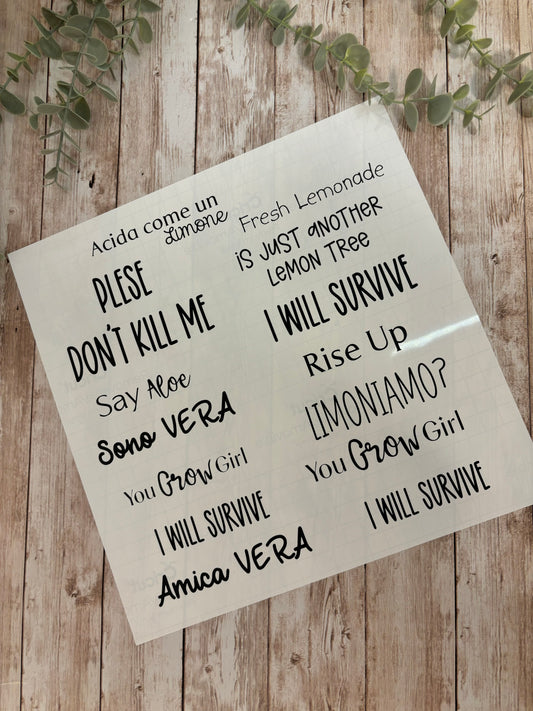 Acida come un
limone
PLESE
DON'T KILL ME
Say Aloe
Sono VERA
You Grow Girl
I WILL SURVIVE
Amica VERA
Fresh Lemonade
iS JUST aNOTHER
LEMON TREE
I WILL SURVIVE
Rise Up
LIMONIAMO?
You Grow Girl
I WILL SURVIVE